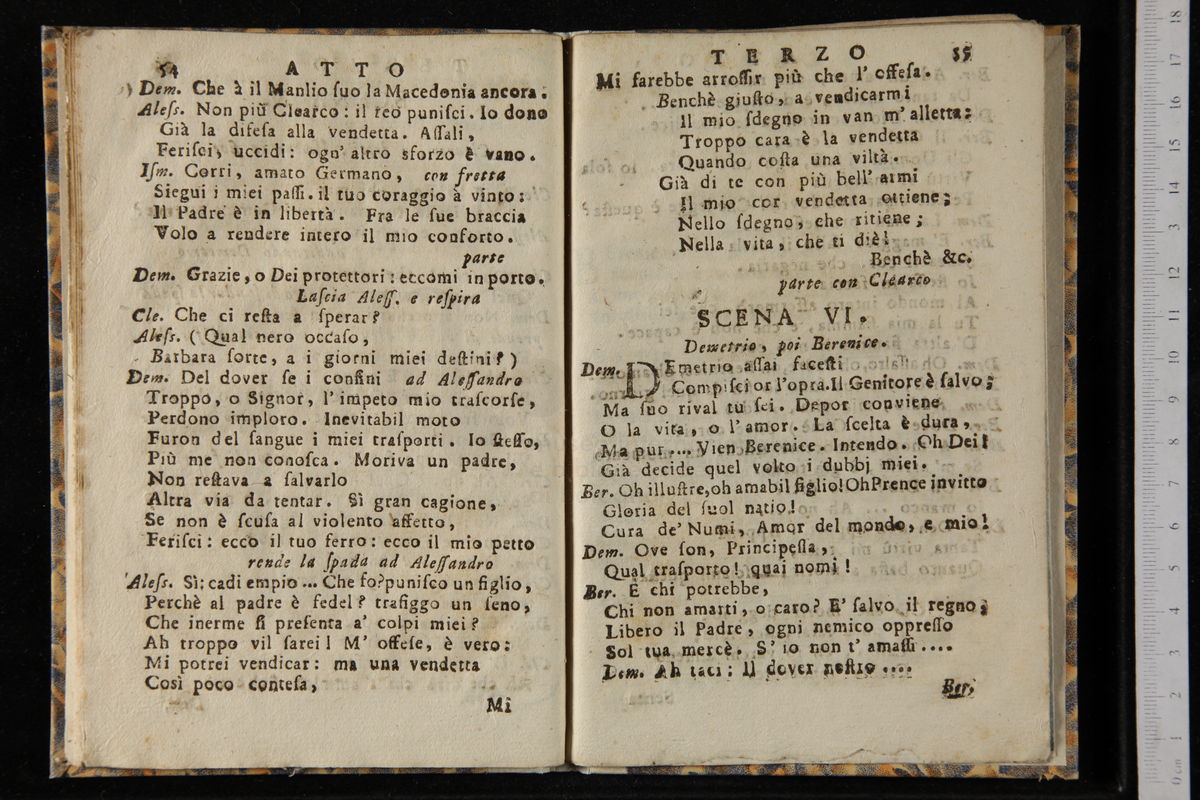 54 ATTO
Dem. Che à il Manlio ſuo la Macedonia ancora.
Aleſs. Non più Clearco: il reo puniſci. Io dono
Già la difeſa alla vendetta. Aſſali,
Feriſci, uccidi: ogn' altro sforzo è vano.
Iſm. Corri, amato Germano, con fretta
Siegui i miei paſſi. il tuo coraggio à vinto:
Il Padre è in libertà. Fra le ſue braccia
Volo a rendere intero il mio conforto.
parte
Dem. Grazie, o Dei protettori: eccomi in porto.
Laſcia Aleſſ. e reſpira
Cle. Che ci reſta a ſperar?
Aleſs. (Qual nero occaſo,
Barbara ſorte, a i giorni miei deſtini?)
Dem. Del dover ſe i confini ad Aleſſandro
Troppo, o Signor, l' impeto mio traſcorſe,
Perdono imploro. Inevitabil moto
Furon del ſangue i miei traſporti. Io ſteſſo,
Più me non conoſca. Moriva un padre,
Non reſtava a ſalvarlo
Altra via da tentar. Sì gran cagione,
Se non è ſcuſa al violento affetto,
Feriſci: ecco il tuo ferro: ecco il mio petto
rende la ſpada ad Aleſſandro
Aleſs. Sì: cadi empio ... Che fo? puniſco un figlio,
Perchè al padre è fedel? trafiggo un ſeno,
Che inerme ſi preſenta a' colpi miei?
Ah troppo vil ſarei! M' offeſe, è vero:
Mi potrei vendicar: ma una vendetta
Così poco conteſa,
Mi
TERZO 55
Mi farebbe arroſſir più che l' offeſa.
Benchè giuſto, a vendicarmi
Il mio ſdegno in van m' alletta:
Troppo cara è la vendetta
Quando coſta una viltà.
Già di te con più bell' armi
Il mio cor vendetta ottiene;
Nello ſdegno, che ritiene;
Nella vita, che ti diè!
Benchè &c.
parte con Clearco
SCENA VI.
Demetrio, poi Berenice.
Dem. DEmetrio aſſai faceſti
Compiſci or l'opra. Il Genitore è ſalvo;
Ma ſuo rival tu ſei. Depor conviene
O la vita, o l' amor. La ſcelta è dura,
Ma pur .... Vien Berenice. Intendo. Oh Dei!
Già decide quel volto i dubbj miei.
Ber. Oh illuſtre, oh amabil figlio! Oh Prence invitto
Gloria del ſuol natio!
Cura de' Numi, Amor del mondo, e mio!
Dem. Ove ſon, Principeſſa,
Qual traſporto! quai nomi!
Ber. E chi potrebbe,
Chi non amarti, o caro? E' ſalvo il regno;
Libero il Padre, ogni nemico oppreſſo
Sol tua mercè. S' io non t' amaſſi ....
Dem. Ah taci: Il dover noſtro ....
Ber.